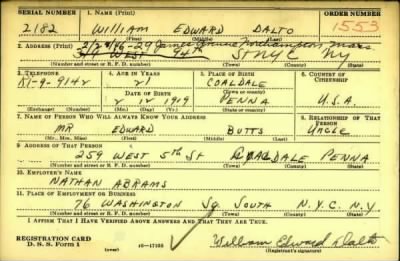 SERIAL NUMBER 1. NAME (Print) ORDER NUMBER
2182 WILLIAM EDWARD DALTO 1553
(First) (Middle) (Last)
2. ADDRESS (Print)
94TH ST NYC NY
(Number and street or R. F. D. number) (Town) (County) (State)
3. TELEPHONE 4. AGE IN YEARS 5. PLACE OF BIRTH 6. COUNTRY OF CITIZENSHIP
21 COALDALE
DATE OF BIRTH (Town or county)
2 12 1919 PENNA U.S.A.
(Exchange) (Number) (Mo.) (Day) (Yr.) (State or country)
7. NAME OF PERSON WHO WILL ALWAYS KNOW YOUR ADDRESS 8. RELATIONSHIP OF THAT PERSON
MR EDWARD BUTTS UNCLE
(Mr., Mrs., Miss) (First) (Middle) (Last)
9. ADDRESS OF THAT PERSON
259 WEST 5TH ST COALDALE PENNA
(Number and street or R. F. D. number) (Town) (County) (State)
10. EMPLOYER'S NAME
NATHAN ABRAMS
11. PLACE OF EMPLOYMENT OR BUSINESS
76 WASHINGTON Sq. SOUTH N.Y.C. N.Y
(Number and street or R. F. D. number) (Town) (County) (State)
I AFFIRM THAT I HAVE VERIFIED ABOVE ANSWERS AND THAT THEY ARE TRUE.
REGISTRATION CARD
D. S. S. Form 1 William Edward Dalto
(over) (Registrant's signature)